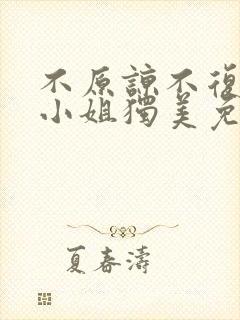 不原諒不復
小姐獨美免
夏春濤